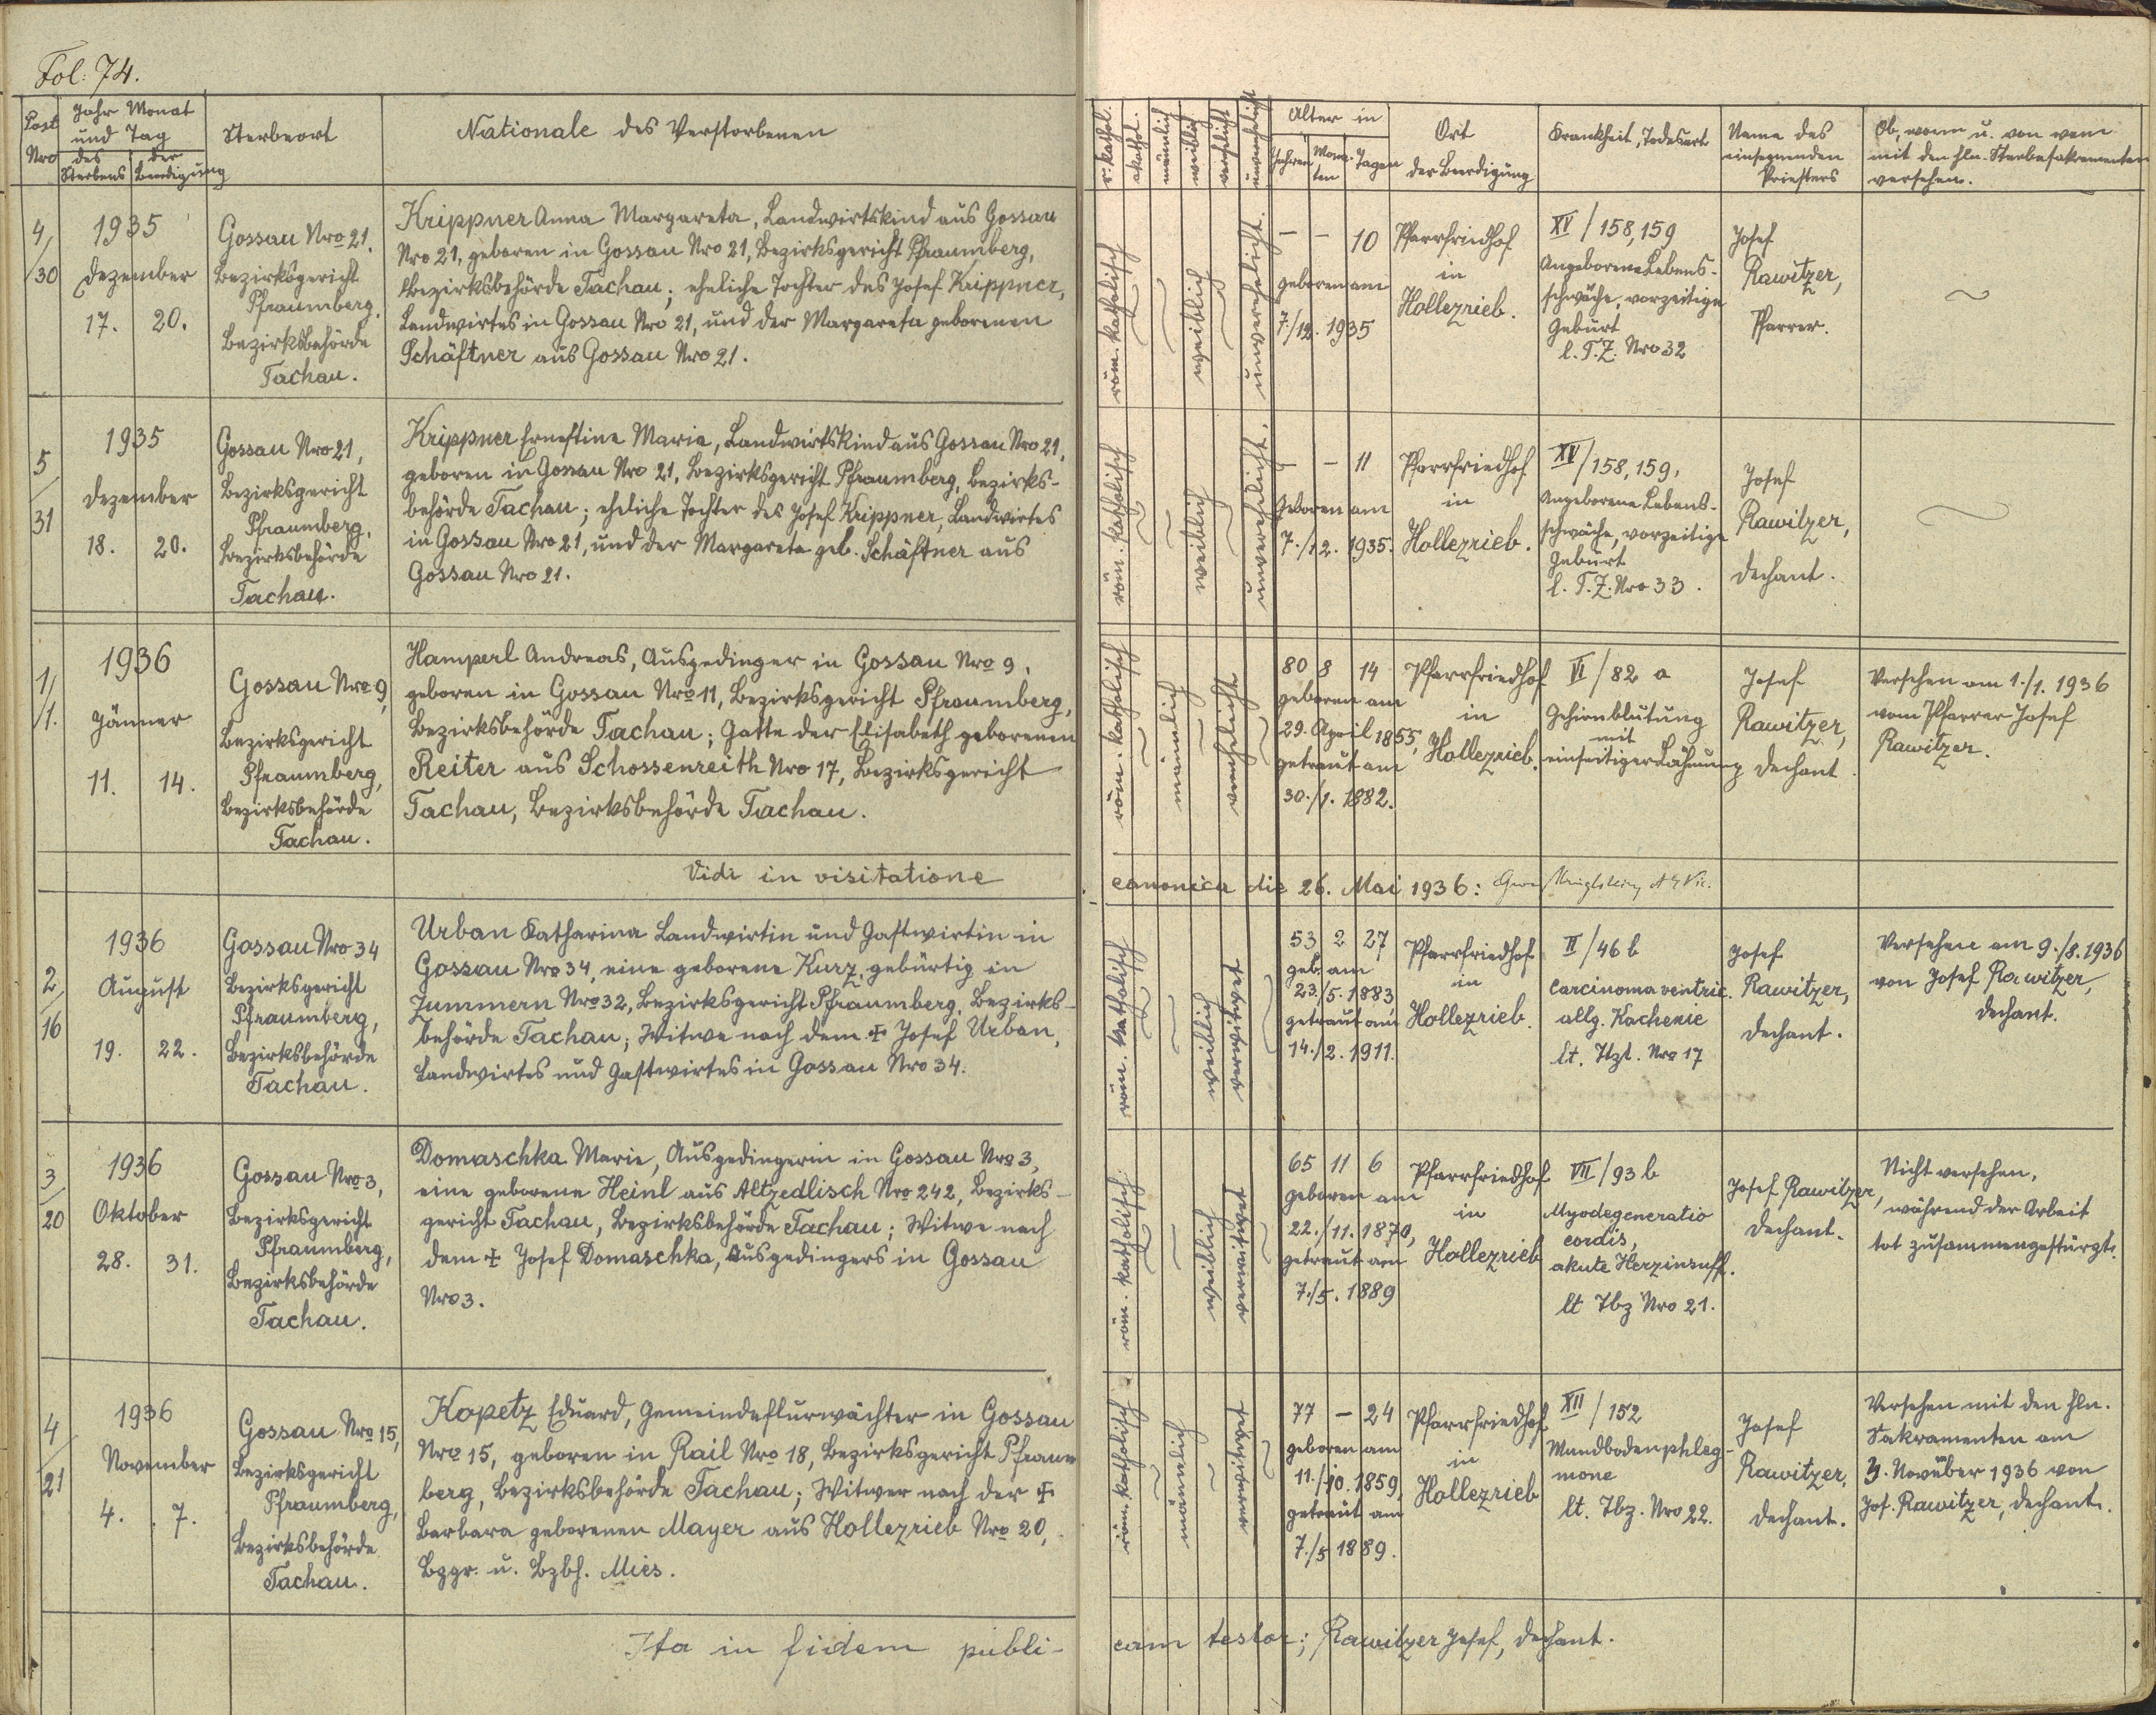 Fol: 74.
Post Nro
Jahr Monat
und Tag
des Sterbens
der Beerdigung
Sterbeort
Nationale des Verstorbenen
r. kathol.
akathol.
männlich
weiblich
verehelicht
unverehelicht
Alter in
Jahren
Mona-
ten
Tagen
Ort
der Beerdigung
Krankheit, Todesart
Name des
einsegnenden
Priesters
Ob, wann u. von wem
mit den hln. Sterbesakramenten
versehen.
4/30
1935
Dezember
17. 20.
Gossau Nro 21.
Bezirksgericht
Pfraumberg,
Bezirksbehörde
Tachau.
Krippner Anna Margareta, Landwirtskind aus Gossau
Nro 21, geboren in Gossau Nro 21, Bezirksgericht Pfraumberg,
Bezirksbehörde Tachau; eheliche Tochter des Josef Krippner,
Landwirtes in Gossau Nro 21, und der Margareta geborenen
Schäftner aus Gossau Nro 21.
röm. katholisch
weiblich
unverehelicht.
– – 10
geboren am
7./12. 1935
Pfarrfriedhof
in
Hollezrieb.
XV/158,159
Angeborene Lebens-
schwäche, vorzeitige
Geburt
l. T. Z. Nro 32
Josef
Rawitzer,
Pfarrer.
5/31
1935
Dezember
18. 20.
Gossau Nro 21,
Bezirksgericht
Pfraumberg,
Bezirksbehörde
Tachau.
Krippner Ernestine Maria, Landwirtskind aus Gossau Nro 21,
geboren in Gossau Nro 21, Bezirksgericht Pfraumberg, Bezirks-
behörde Tachau; eheliche Tochter des Josef Krippner, Landwirtes
in Gossau Nro 21, und der Margareta geb. Schäftner aus
Gossau Nro 21.
röm. katholisch
weiblich
unverehelicht.
– – 11
Geboren am
7./12. 1935.
Pfarrfriedhof
in
Hollezrieb.
XV/158,159,
Angeborene Lebens-
schwäche, vorzeitige
Geburt
l. T. Z. Nro 33.
Josef
Rawitzer,
Dechant.
1/1.
1936
Jänner
11. 14.
Gossau Nro 9,
Bezirksgericht
Pfraumberg,
Bezirksbehörde
Tachau.
Hamperl Andreas, Ausgedinger in Gossau Nro 9,
geboren in Gossau Nro 11, Bezirksgericht Pfraumberg,
Bezirksbehörde Tachau; Gatte der Elisabeth geborenen
Reiter aus Schossenreith Nro 17, Bezirksgericht
Tachau, Bezirksbehörde Tachau.
röm. katholisch
männlich
verehelicht
80 8 14
geboren am
29. April 1855,
getraut am
30./1. 1882.
Pfarrfriedhof
in
Hollezrieb.
VI/82 a
Gehirnblutung
mit
einseitiger Lähmung
Josef
Rawitzer,
Dechant.
Versehen am 1./1. 1936
vom Pfarrer Josef
Rawitzer.
Vidi in visitatione
canonica die 26. Mai 1936:
2/16
1936
August
19. 22.
Gossau Nro 34
Bezirksgericht
Pfraumberg,
Bezirksbehörde
Tachau.
Urban Katharina Landwirtin und Gastwirtin in
Gossau Nro 34, eine geborene Kurz, gebürtig in
Zummern Nro 32, Bezirksgericht Pfraumberg, Bezirks-
behörde Tachau; Witwe nach dem ✠ Josef Urban,
Landwirtes und Gastwirtes in Gossau Nro 34.
röm. katholisch
weiblich
verwitwet
53 2 27
geb. am
23./5. 1883,
getraut am
14./2. 1911.
Pfarrfriedhof
in
Hollezrieb.
II/46 b
Carcinoma ventric.
allg. Kachexie
lt. Nro 17
Josef
Rawitzer,
Dechant.
Versehen am 9./8. 1936
von Josef Rawitzer,
Dechant.
3/20
1936
Oktober
28. 31.
Gossau Nro 3,
Bezirksgericht
Pfraumberg,
Bezirksbehörde
Tachau.
Domaschka Marie, Ausgedingerin in Gossau Nro 3,
eine geborene Heinl aus Altzedlisch Nro 242, Bezirks-
gericht Tachau, Bezirksbehörde Tachau; Witwe nach
dem ✠ Josef Domaschka, Ausgedingers in Gossau
Nro 3.
röm. katholisch
weiblich
verwitwet
65 11 6
geboren am
22./11. 1870,
getraut am
7./5. 1889
Pfarrfriedhof
in
Hollezrieb
VII/93 b
Myodegeneratio
cordis,
akute Herzinsuff.
lt Tbz Nro 21.
Josef Rawitzer,
Dechant.
Nicht versehen,
während der Arbeit
tot zusammengestürzt.
4/21
1936
November
4. 7.
Gossau Nro 15,
Bezirksgericht
Pfraumberg,
Bezirksbehörde
Tachau.
Kopetz Eduard, Gemeindeflurwächter in Gossau
Nro 15, geboren in Rail Nro 18, Bezirksgericht Pfraum
berg, Bezirksbehörde Tachau; Witwer nach der ✠
Barbara geborenen Mayer aus Hollezrieb Nro 20,
Bzgr. u. Bzbh. Mies.
röm. katholisch
männlich
verwitwet
77 – 24
geboren am
11./10. 1859,
getraut am
7./5 1889.
Pfarrfriedhof
in
Hollezrieb
XII/152
Mundbodenphleg-
mone
lt. Tbz. Nro 22.
Josef
Rawitzer,
Dechant.
Versehen mit den hln.
Sakramenten am
3. November 1936 von
Jos. Rawitzer, Dechant.
Ita in fidem publi-
cam testor; Rawitzer Josef, Dechant.